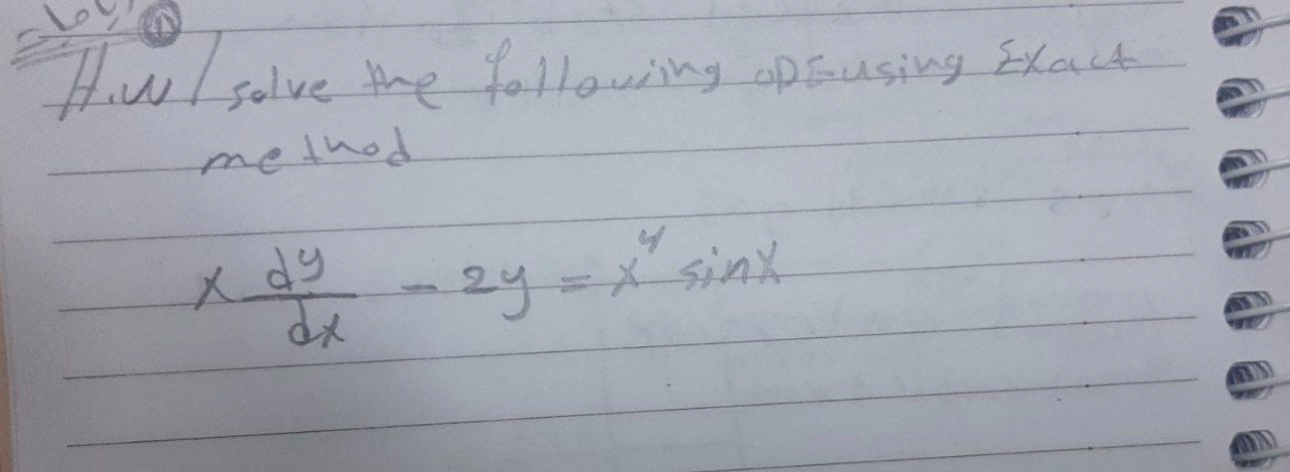 ①
H.W/ solve the following ODE using Exact
method
x dy/dx - 2y = x⁴ sinx